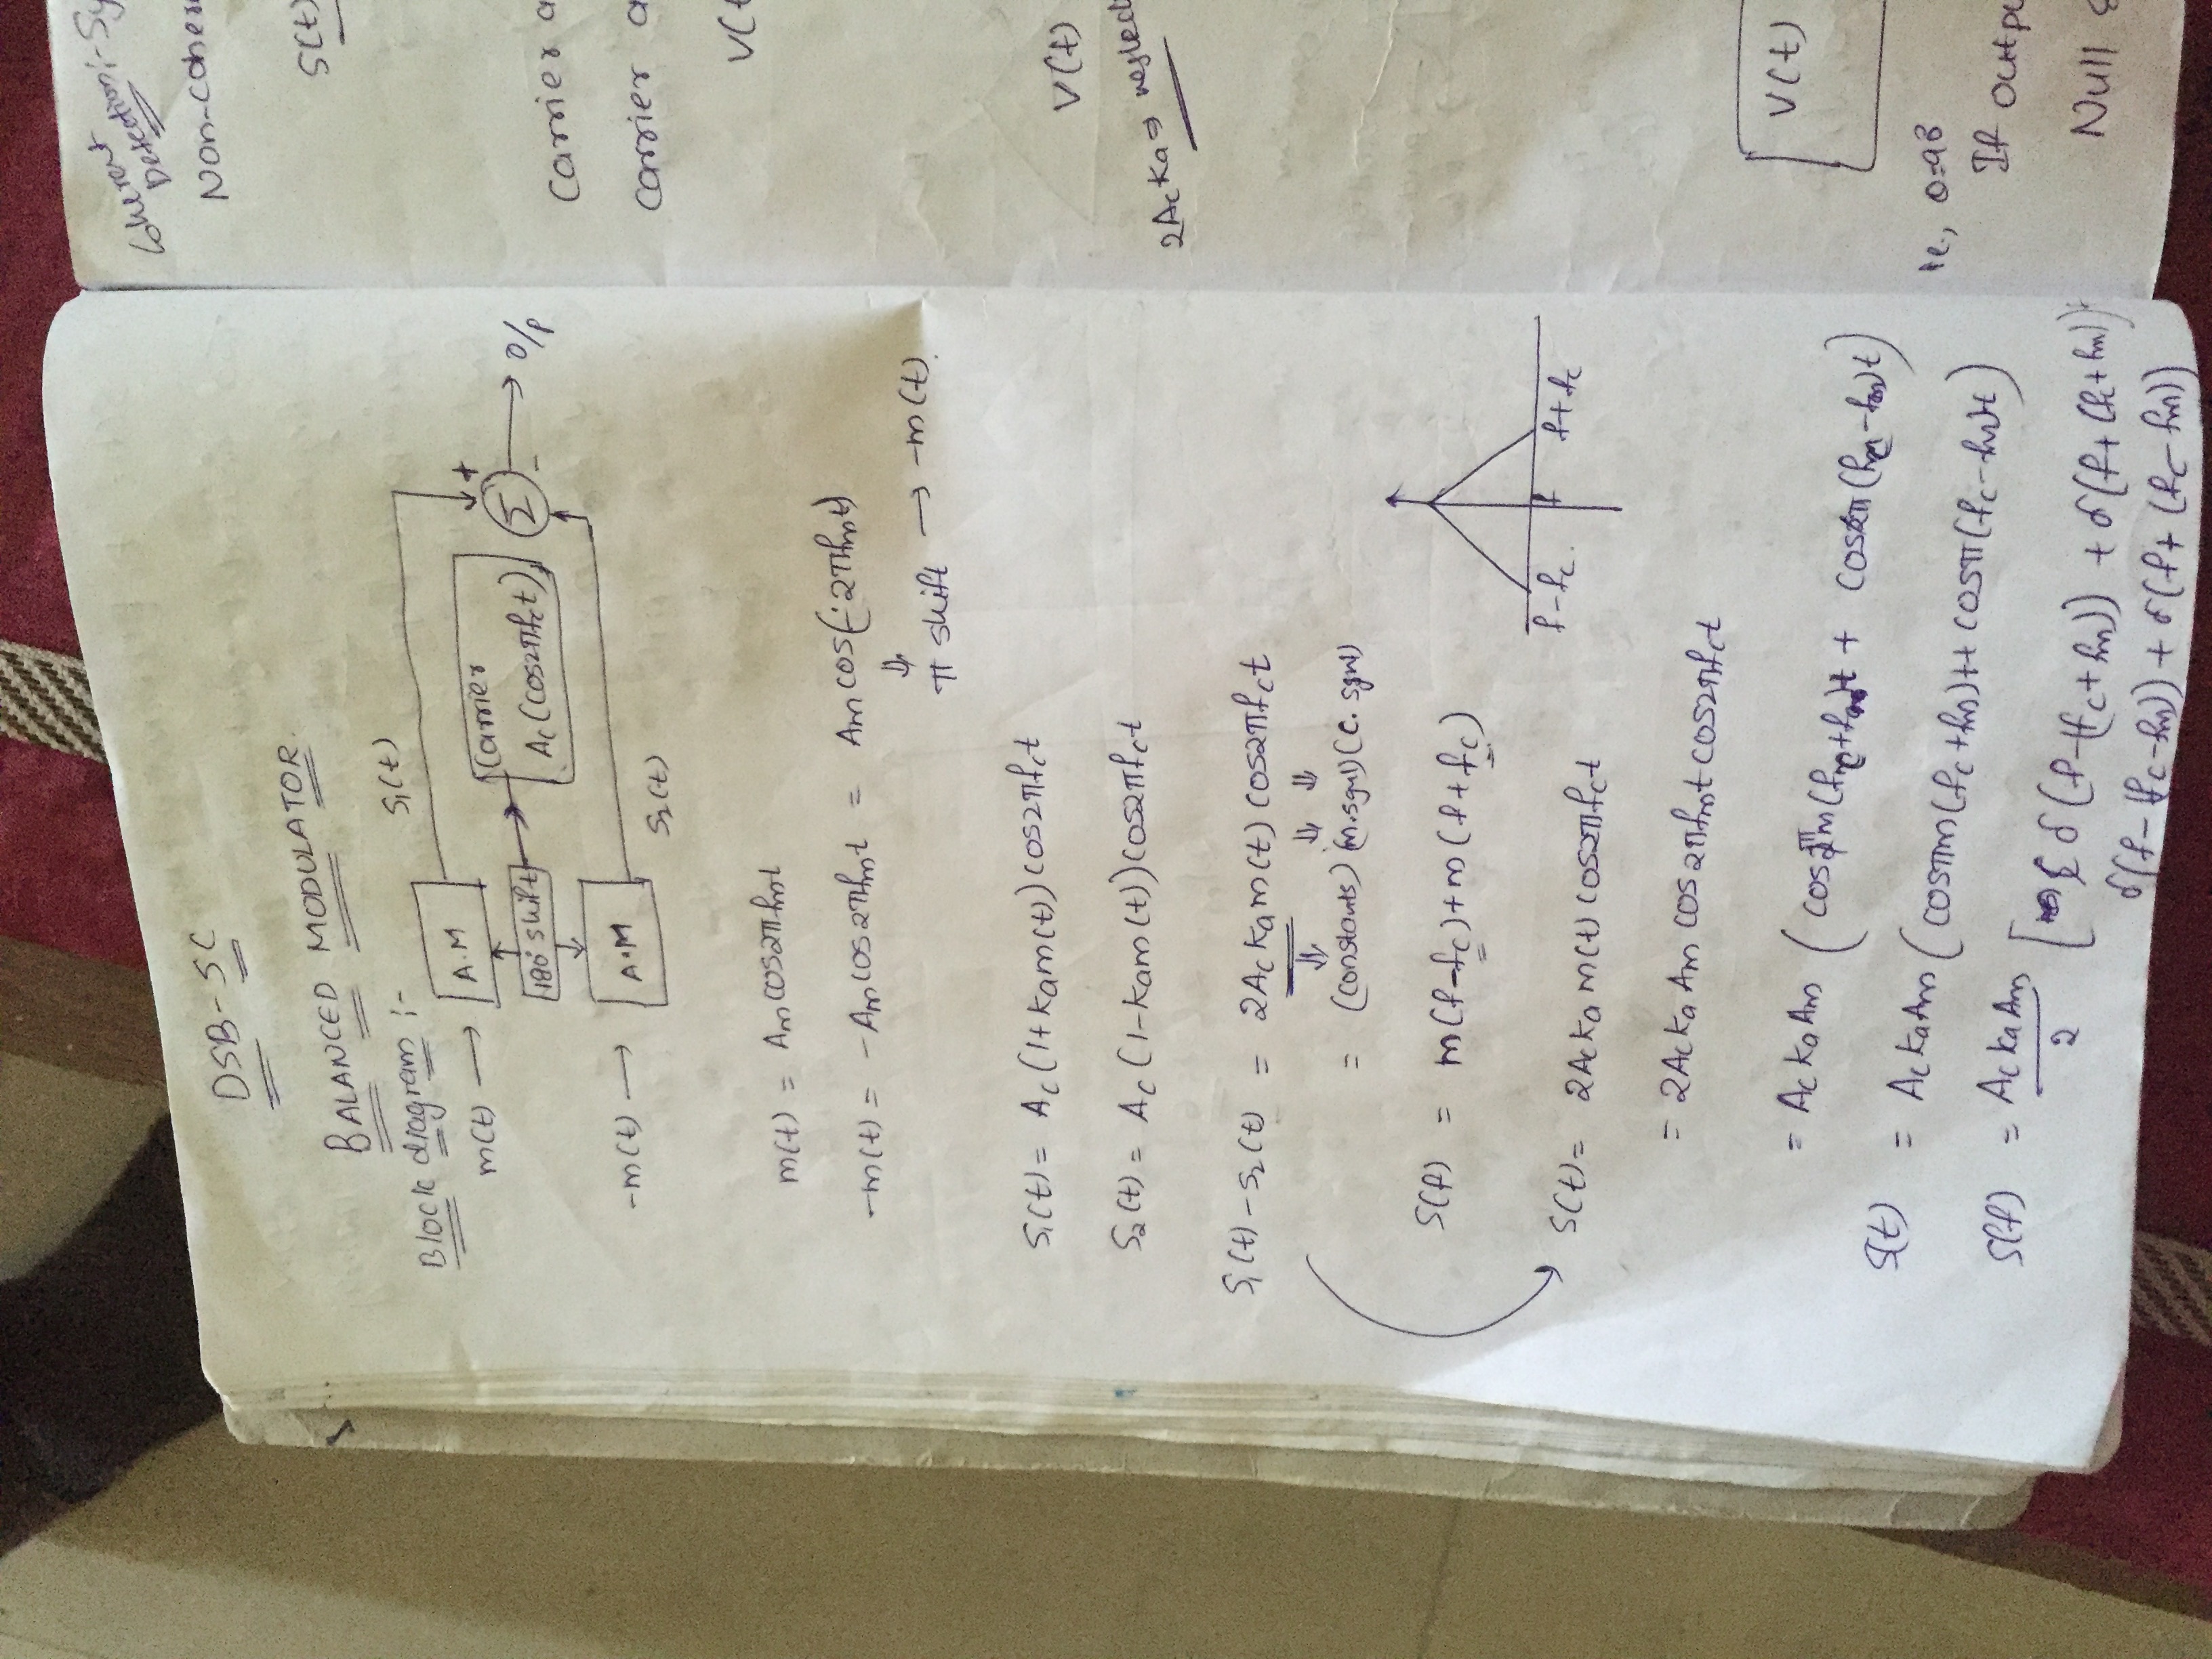 DSB-SC
BALANCED MODULATOR.
Block diagram :-
S₁(t)
m(t) → A.M
Carrier
Ac(cos2πfct)
180° shift
+
Σ → O/p
-
-m(t) → A.M
S₂(t)
m(t) = Am cos2πfmt
-m(t) = -Am cos2πfmt = Am cos(-2πfmt)
⇓
π shift → -m(t).
S₁(t) = Ac(1+kam(t))cos2πfct
S₂(t) = Ac(1-kam(t))cos2πfct
S₁(t)-S₂(t) = 2Ackam(t) cos2πfct
⇓ ⇓ ⇓
= (constants) (m.sgnl) (c. sgnl)
S(f) = m(f-fc)+m(f+fc)
f-fc. f f+fc
S(t) = 2Acka m(t) cos2πfct
= 2AckaAm cos2πfmt cos2πfct
= AckaAm (cos2πm(fc+fm)t + cos2π(fc-fm)t)
S(t) = AckaAm (cosπm(fc+fm)t+ cosπ(fc-fm)t)
S(f) = AckaAm/2 [δ(f-(fc+fm)) + δ(f+(fc+fm))+
δ(f-(fc-fm)) + δ(f+(fc-fm))
Coherent
Detection:- Sy
Non-coher
S(t)
Carrier a
Carrier a
V(t
V(t)
2Acka⇒ neglect
V(t)
ie.,
If outpu
Null